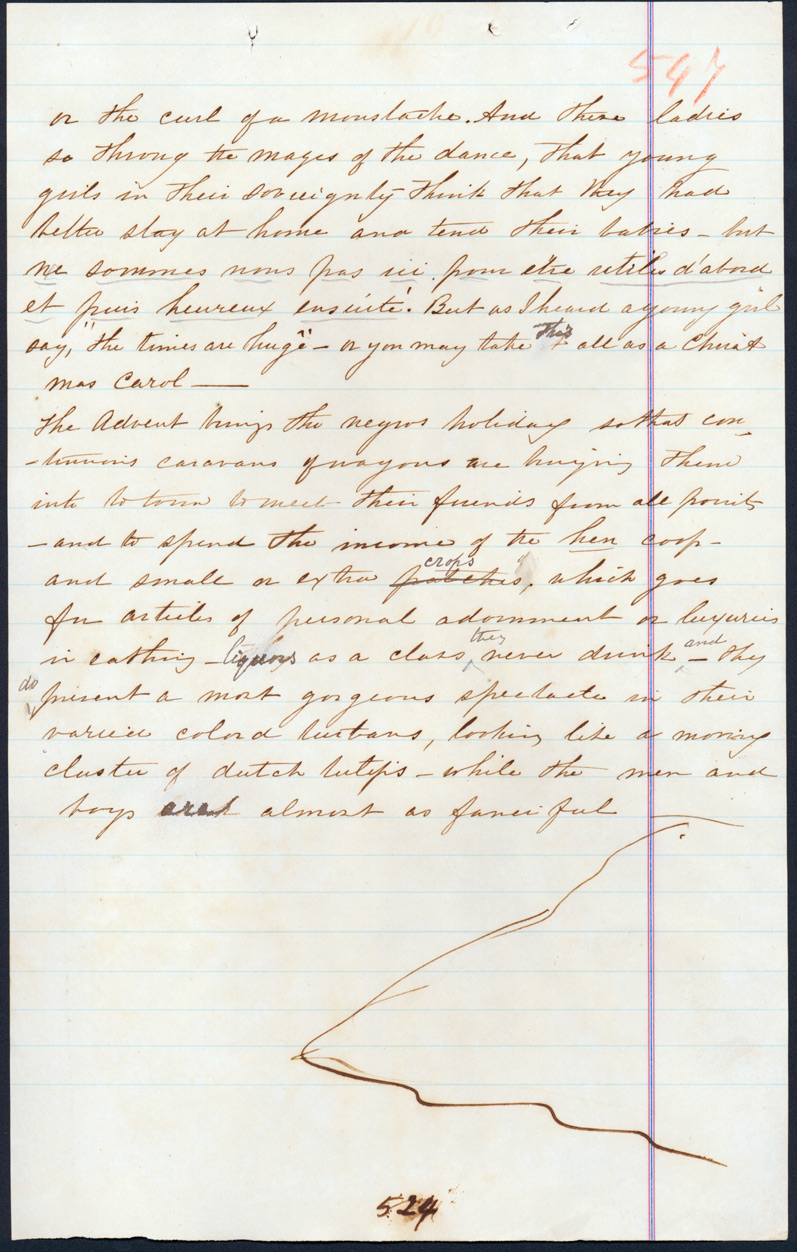 547
or the curl of a moustache. And these ladies
so throng the mazes of the dance, that young
girls in their sovereignty think that they had
better stay at home and tend their babies - but
ne sommes nous pas ici pour etre utiles d'abord
et puis heureux ensuite! But as I heard a young girl
say, "the times are huge" - or you may take this all as a Christ
mas Carol —
The Advent brings the negros holiday so that con-
-tinuous caravans of wagons are bringing them
into to town to meet their friends from all points
- and to spend the income of the hen coop -
and small or extra patches, crops which goes
for articles of personal adornment or luxuries
in eathing - liquors as a class they never drink - and they
do present a most gorgeous spectacle in their
varied colord turbans, looking like a moving
cluster of dutch tulips - while the men and
boys are almost as fanciful
524